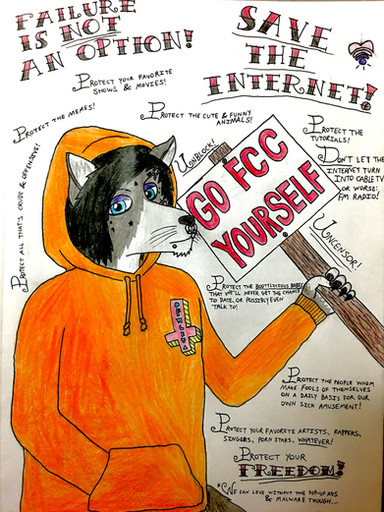 FAILURE
IS NOT
AN OPTION!
SAVE
THE
INTERNET!
PROTECT YOUR FAVORITE
SHOWS & MOVIES!
PROTECT THE MEMES!
PROTECT THE CUTE & FUNNY
ANIMALS!
PROTECT ALL THAT'S CRUDE & OFFENSIVE!
UNBLOCK!
GO FCC
YOURSELF
PROTECT THE
TUTORIALS!
DON'T LET THE
INTERNET TURN
INTO CABLE TV
OR WORSE:
FM RADIO!
UNCENSOR!
PROTECT THE BOOTYLICIOUS BABES
THAT WE'LL NEVER GET THE CHANCE
TO DATE, OR POSSIBLY EVEN
TALK TO!
PROTECT THE PEOPLE WHOM
MAKE FOOLS OF THEMSELVES
ON A DAILY BASIS FOR OUR
OWN SICK AMUSEMENT!
PROTECT YOUR FAVORITE ARTISTS, RAPPERS,
SINGERS, PORN STARS, WHATEVER!
PROTECT YOUR
FREEDOM!
*WE CAN LIVE WITHOUT THE POP-UP ADS
& MALWARE THOUGH...